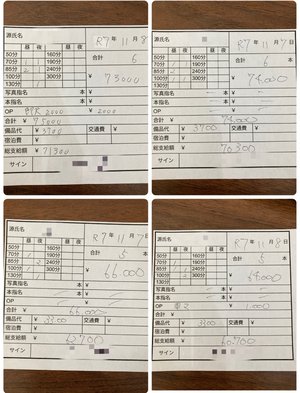 源氏名
R7年11月8
昼 夜 昼 夜
50分 160分
70分 190分 合計 6
85分 240分
100分 300分 ¥ 73000
130分
写真指名 本 ¥
本指名 本 ¥
OP 2000 ¥ 2000
合計 ¥ 75000
備品代 ¥ 3700 交通費 ¥
宿泊費 ¥
総支給額 ¥ 71300
サイン
源氏名
R7年11月7日
昼 夜 昼 夜
50分 160分
70分 190分 合計 6
85分 240分
100分 300分 ¥ 74.000
130分
写真指名 本 ¥
本指名 本 ¥
OP ¥
合計 ¥ 74.000
備品代 ¥ 3700 交通費 ¥
宿泊費 ¥
総支給額 ¥ 70300
サイン
源氏名
R7年11月7日
昼 夜 昼 夜
50分 160分
70分 190分 合計 5
85分 240分
100分 300分 ¥ 66.000
130分
写真指名 本 ¥
本指名 本 ¥
OP ¥
合計 ¥ 66.000
備品代 ¥ 3300 交通費 ¥
宿泊費 ¥
総支給額 ¥ 62.700
サイン
源氏名
R7年11月8日
昼 夜 昼 夜
50分 160分
70分 190分 合計 5
85分 240分
100分 300分 ¥ 64.000
130分
写真指名 本 ¥
本指名 本 ¥
OP 1.000
合計 ¥
備品代 ¥ 3300 交通費 ¥
宿泊費 ¥
総支給額 ¥ 60.700
サイン